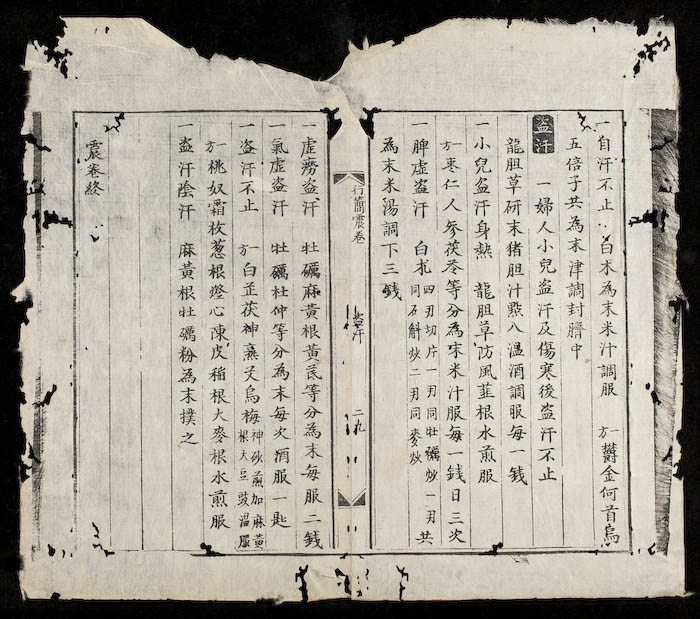 一自汗不止 白朮為末米汁調服 一方欝金何首烏
五倍子共為末津調封臍中
盗汗 一婦人小兒盗汗及傷寒後盗汗不止
龍胆草研末猪胆汁㸃入温酒調服每一錢
一小兒盗汗身熱 龍胆草防風韮根水煎服
一方枣仁人參茯苓等分為末米汁服每一錢日三次
一脾虛盗汗 白朮 四刄切片一刄同牡礪炒一刄共
同石斛炒二刄同麥炒
為末米湯調下三錢
行簡震卷 盗汗 二九
一虛癆盗汗 牡礪麻黃根黃茋等分為末每服二錢
一氣虛盗汗 牡礪杜仲等分為末每次酒服一匙
一盗汗不止 一方白芷茯神 烏梅 神砂煎加麻黃
根大豆豉温服
一方桃奴霜枚葱根燈心陳皮稲根大麥根水煎服
一盗汗陰汗 麻黃根牡礪粉為末撲之
震卷終